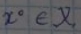 x° ∈ X